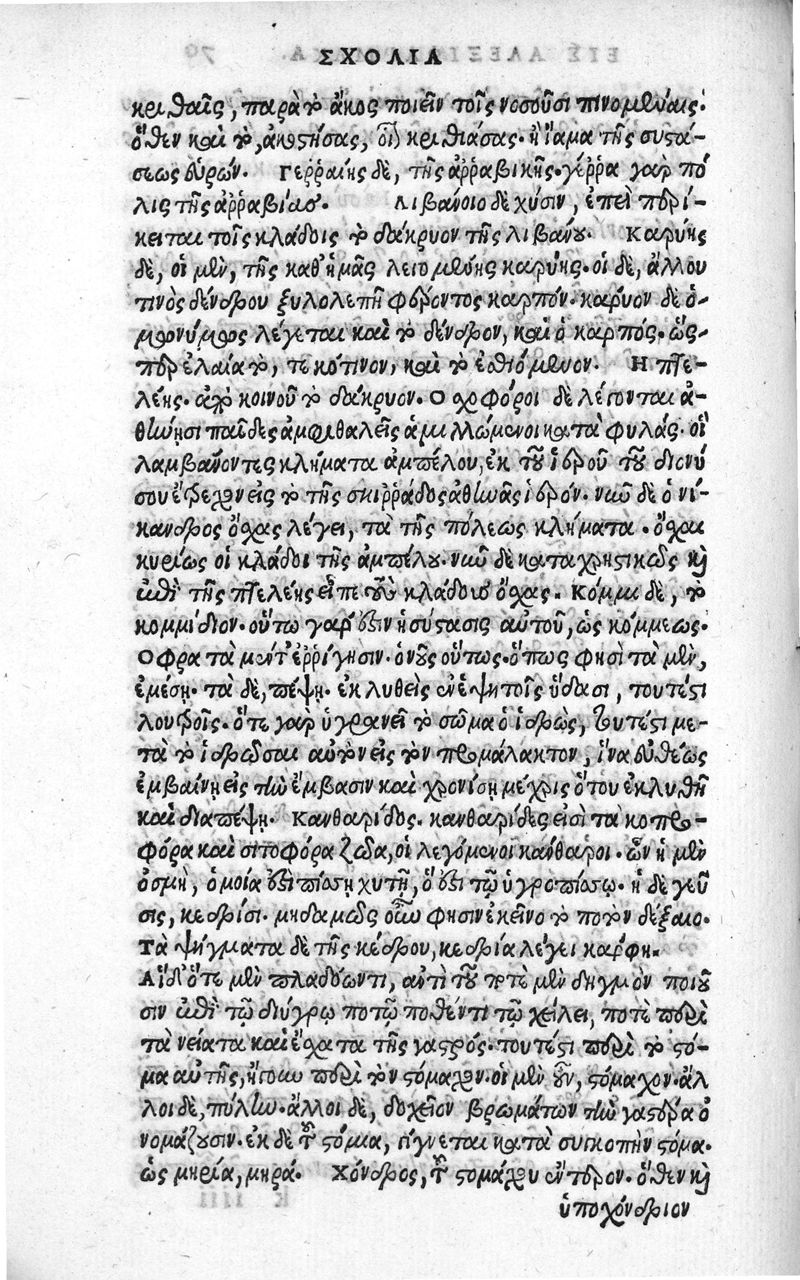 ΣΧΟΛΙΑ
κριθαῖς, παρὰ τὸ ἄκος ποιεῖν τοῖς νοσοῦσι πινομέναις.
ὅθεν καὶ τὸ, ἀκοστήσας, οἷον κριθιάσας. ἢ ἴαμα τῆς συστά-
σεως εὑρών. Γερραίης δὲ, τῆς ἀρραβικῆς. γέρρα γὰρ πό
λις τῆς ἀρραβίας. Λιβάνοιο δὲ χύσιν, ἐπεὶ περί-
κειται τοῖς κλάδοις τὸ δάκρυον τῆς λιβάνου. Καρύης
δὲ, οἱ μὲν, τῆς καθ' ἡμᾶς λεγομένης καρύης. οἱ δὲ, ἄλλου
τινὸς δένδρου ξυλολεπῆ φέροντος καρπόν. κάρυον δὲ ὁ-
μωνύμως λέγεται καὶ τὸ δένδρον, καὶ ὁ καρπός. ὥς-
περ ἐλαία τὸ, τε κότινον, καὶ τὸ ἐσθιόμενον. Η πτε-
λέης. ἀπὸ κοινοῦ τὸ δάκρυον. Ο σχοφόροι δὲ λέγονται ἀ-
θήνησι παῖδες ἀμφιθαλεῖς ἁμιλλώμενοι κατὰ φυλάς. οἳ
λαμβάνοντες κλήματα ἀμπέλου, ἐκ τοῦ ἱεροῦ τοῦ διονύ
σου ἔτρεχον εἰς τὸ τῆς σκιρράδος ἀθηνᾶς ἱερόν. νῦν δὲ ὁ νί-
κανδρος ὄσχας λέγει, τὰ τῆς πόλεως κλήματα. ὄσχαι
κυρίως οἱ κλάδοι τῆς ἀμπέλου. νῦν δὲ καταχρηστικῶς καὶ
ἐπὶ τῆς πτελέης εἶπε τοὺς κλάδους ὄσχας. Κόμμι δὲ, τὸ
κομμίδιον. οὕτω γάρ ἐστιν ἡ σύστασις αὐτοῦ, ὡς κόμμεως.
Οφρα τὰ μέν τ' ἐρρίγησιν. ὁ νοῦς οὕτως. ὅπως φησὶ τὰ μὲν,
ἐμέσῃ. τὰ δὲ, πέψῃ. ἐκλυθεὶς ἐνεψητοῖς ὕδασι, τουτέστι
λουτροῖς. ὅτε γὰρ ὑγρανεῖ τὸ σῶμα ὁ ἱδρὼς, τουτέστι με-
τὰ τὸ ἱδρῶσαι αὐτὸν εἰς τὸν προμάλακτον, ἵνα εὐθέως
ἐμβαίνῃ εἰς τὴν ἔμβασιν καὶ χρονίσῃ μέχρις ὅτου ἐκλυθῇ
καὶ διαπέψῃ. Κανθαρίδος. κανθαρίδες εἰσὶ τὰ κοπρο-
φόρα καὶ σιτοφόρα ζῶα, οἱ λεγόμενοι κάνθαροι. ὧν ἡ μὲν
ὀσμὴ, ὁμοία ἐστὶ πίσσῃ χυτῇ, ὅ ἐστι τῷ ὑγροπίσσῳ. ἡ δὲ γεῦ
σις, κεδρίσι. μηδαμῶς οὖν φησιν ἐκεῖνο τὸ ποτὸν δέξαιο.
Τὰ ψήγματα δὲ τῆς κέδρου, κεδρία λέγει κάρφη.
Αἵ δ' ὅτε μὲν πλαδόωντι, ἀντὶ τοῦ ποτὲ μὲν δηγμὸν ποιοῦ
σιν ἐπὶ τῷ διύγρῳ ποτῷ ποθέντι τῷ χείλει, ποτὲ περὶ
τὰ νείατα καὶ ἔσχατα τῆς γαστρός. τουτέστι περὶ τὸ στό-
μα αὐτῆς, ἤγουν περὶ τὸν στόμαχον. οἱ μὲν οὖν, στόμαχον. ἄλ
λοι δὲ, πύλην. ἄλλοι δὲ, δοχεῖον βρωμάτων τὴν γαστέρα ὀ
νομάζουσιν. ἐκ δὲ τοῦ στόμια, γίγνεται κατὰ συγκοπὴν στόμα.
ὡς μηρία, μηρά. Χόνδρος, τοῦ στομάχου ἔντερον. ὅθεν καὶ
ὑποχόνδριον